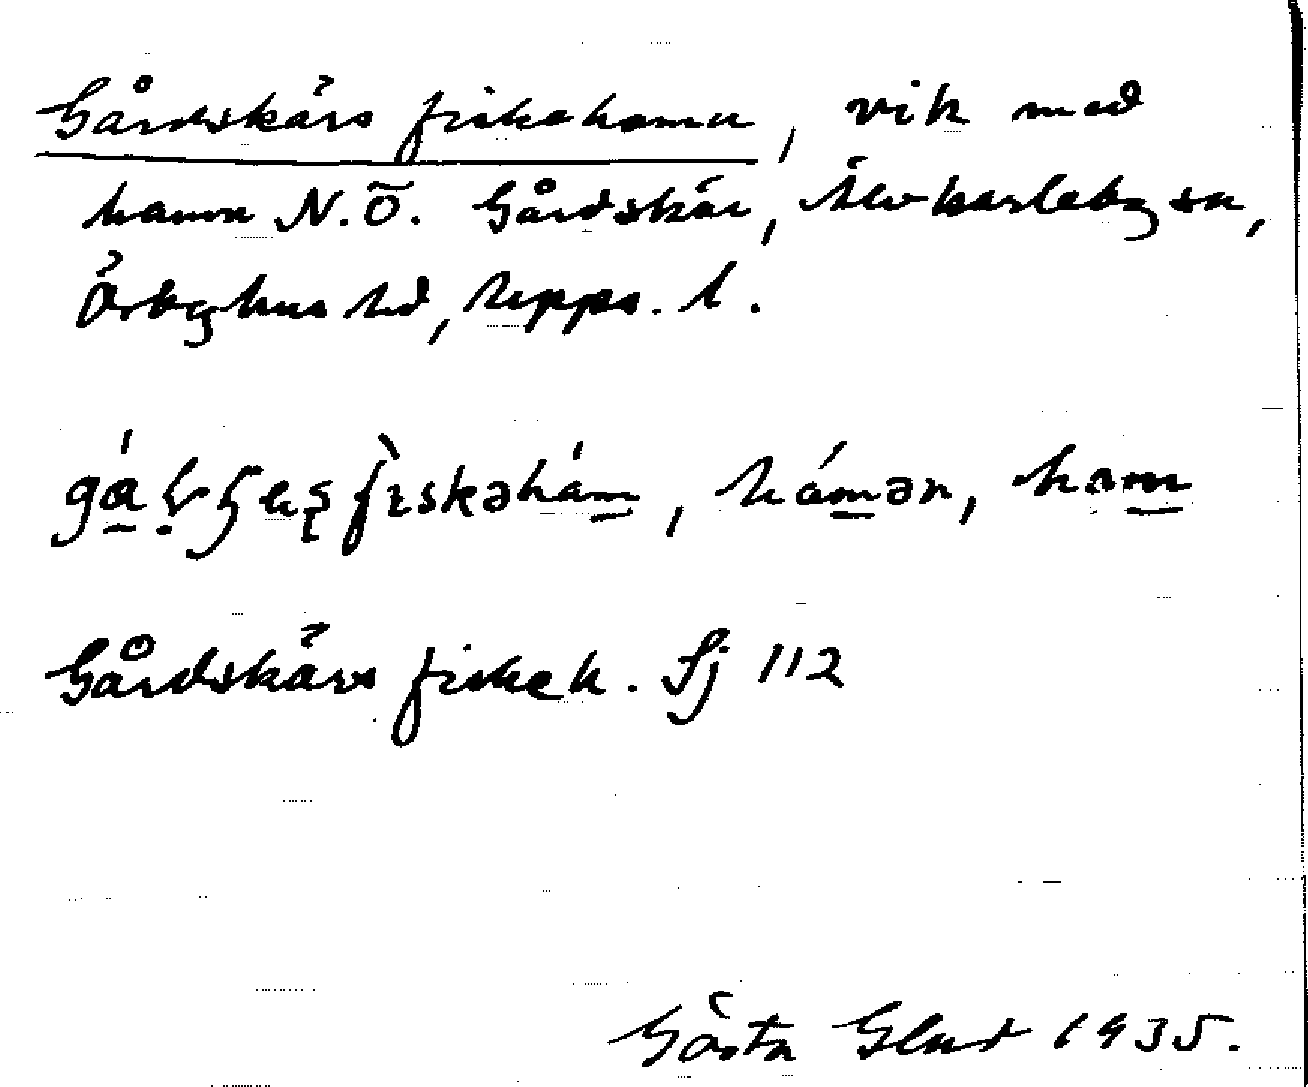 Gårdskärs fiskehamn, vik med
hamn N.Ö. Gårdskär, Älvkarleby sn,
Örbyhus hd, Upps. l.
hámən, ham
Gårdskärs fiskeh. Sj 112
Gösta Glad 1935.